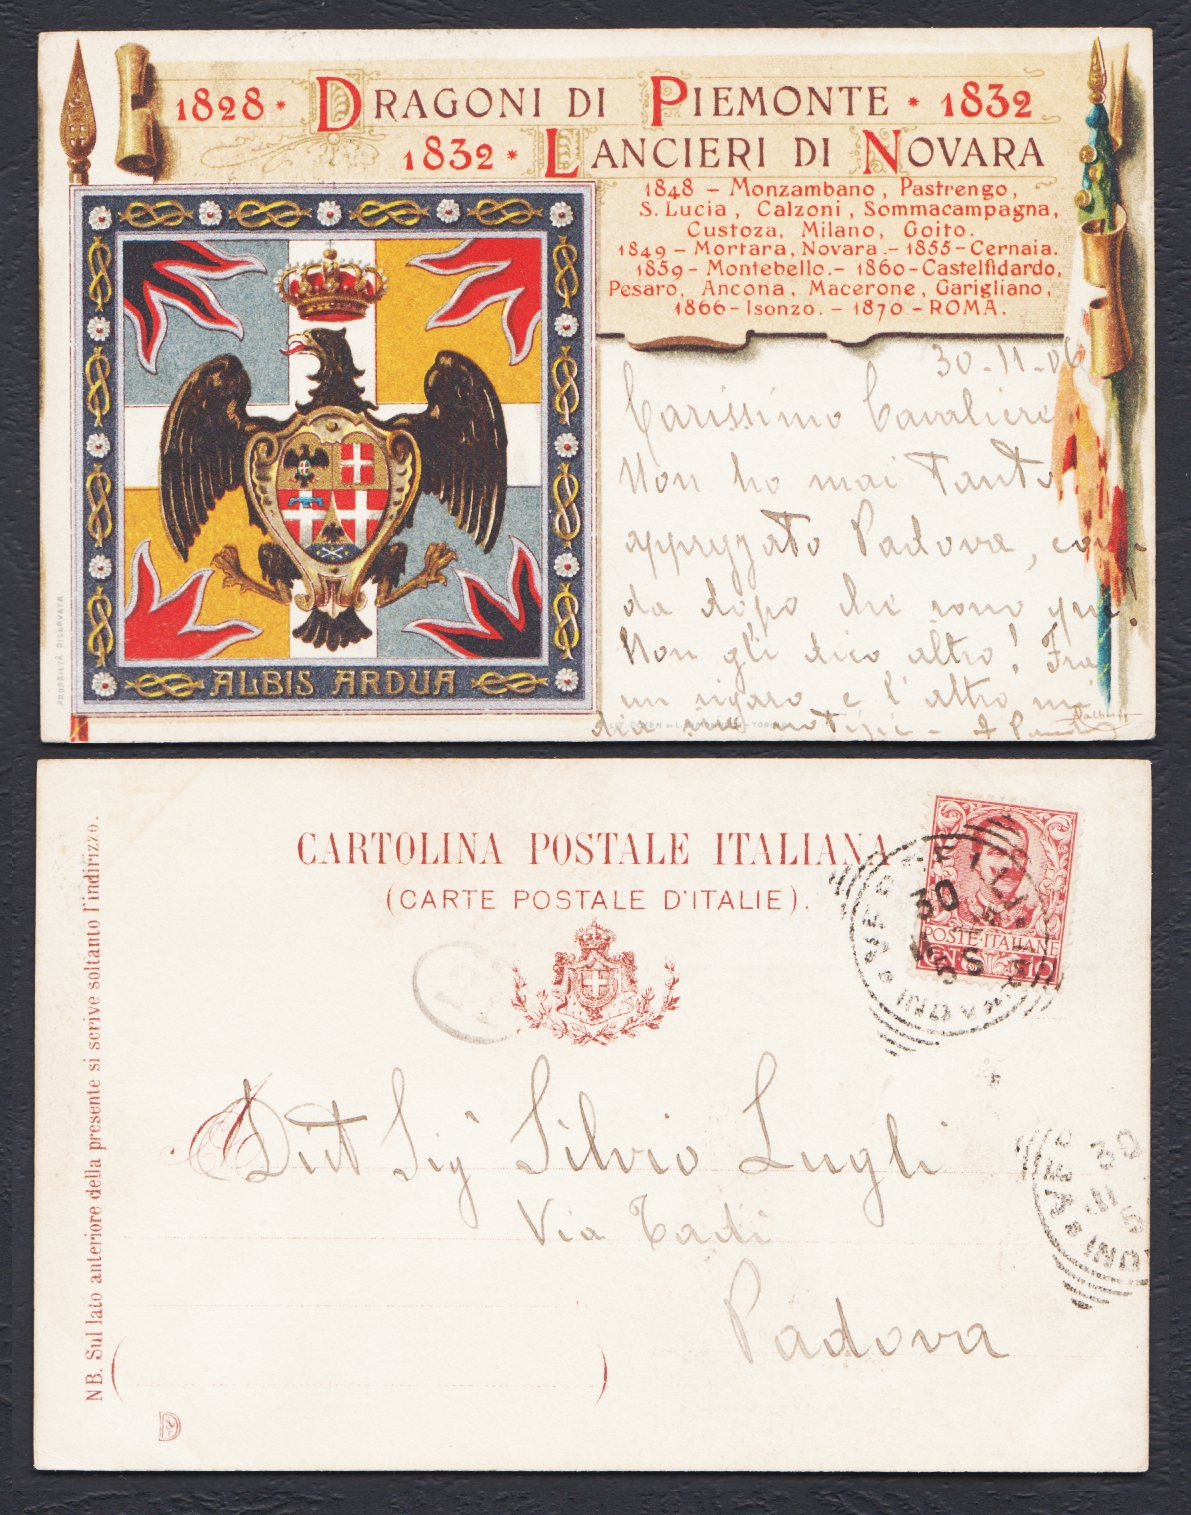 1828 · DRAGONI DI PIEMONTE · 1832
1832 · LANCIERI DI NOVARA
1848 – Monzambano, Pastrengo,
S. Lucia, Calzoni, Sommacampagna,
Custoza, Milano, Goito.
1849 – Mortara, Novara. – 1855 – Cernaia.
1859 – Montebello. – 1860 – Castelfidardo,
Pesaro, Ancona, Macerone, Garigliano,
1866 – Isonzo. – 1870 – ROMA.
30-11-06
Carissimo Cavaliere
Non ho mai tanto
apprezzato Padova, co
da dopo che sono qui.
Non gli dico altro! Fra
un sigaro e l'altro mi
dia sue notizie –
ALBIS ARDUA
PROPRIETÀ RISERVATA
Dalbesio
CARTOLINA POSTALE ITALIANA
(CARTE POSTALE D'ITALIE).
NB. Sul lato anteriore della presente si scrive soltanto l'indirizzo.
POSTE ITALIANE
CENT. 10
30
A Dott Sigr Silvio Lugli
Via Tadi
Padova
30
D